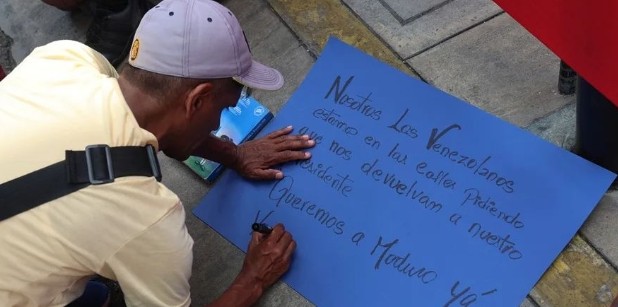 Nosotros Los Venezolanos
estamo en las calles Pidiendo
que nos devuelvan a nuestro
Presidente
Queremos a Maduro Ya